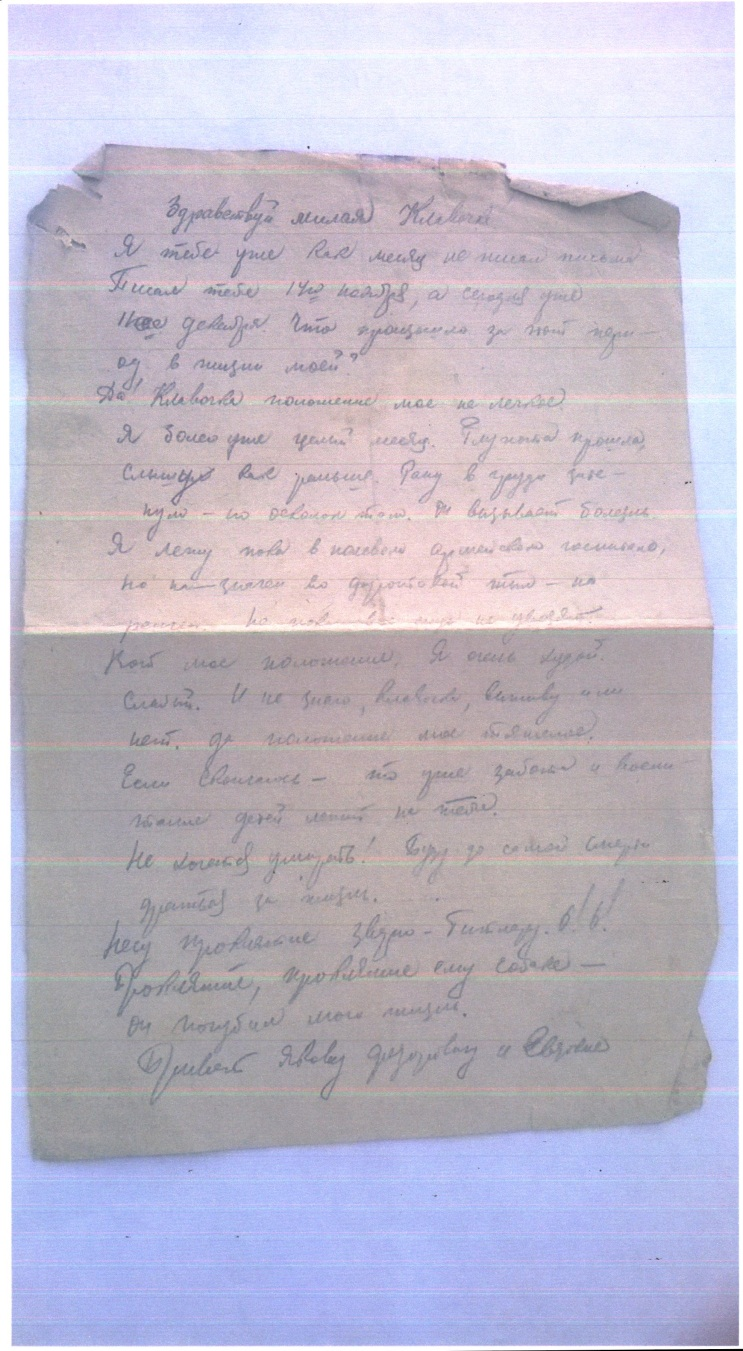 Здравствуй милая Клавочка
Я тебе уже как месяц не писал письма
Писал тебе 14го ноября, а сегодня уже
11ое декабря. Что произошло за этот пери-
од в жизни моей?
Да! Клавочка положение мое не легкое.
Я болею уже целый месяц. Глухота прошла,
слышу как раньше. Рану в груди затя-
нуло – но осколок там. Он вызывает болезнь
Я лежу пока в полевом армейском госпитале,
но назначен во фронтовой тыл – но
но пока не увозят.
Вот мое положение. Я очень худой.
Слабый. И не знаю, Клавочка, выживу или
нет. Да положение мое тяжелое.
Если скончаюсь – то уже забота и воспи-
тание детей лежит на тебе.
Не хочется умирать! Буду до самой смерти
драться за жизнь. . .
Несу проклятие зверю – Гитлеру.
Проклятие, проклятие ему собаке –
он погубил мою жизнь.
Привет Якову Федоровичу и